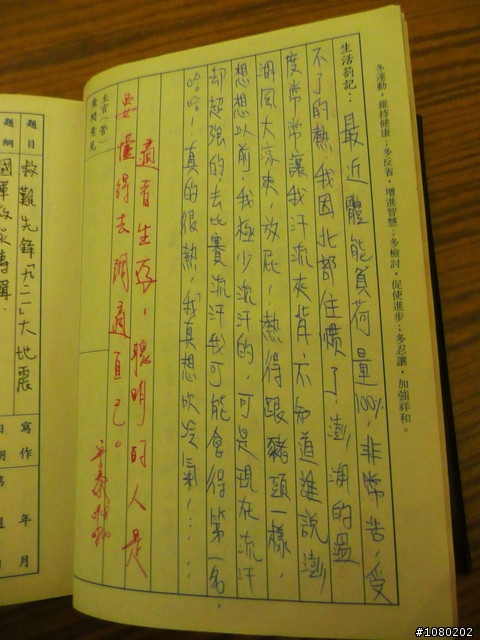 多運動，維持健康；多反省，增進智慧；多檢討，促使進步；多忍讓，加強祥和。
生活箚記：最近體能負荷量100%，非常苦，受
不了的熱，我因北部住慣了，澎湖的溫
度常常讓我汗流夾背，不知道誰說澎
湖風大涼爽，放屁，熱得跟豬頭一樣，
想想以前，我極少流汗的，可是現在流汗
却超強的，去比賽流汗我可能會得第一名
哈哈！真的很熱，我真想吹冷氣！...
主官（管）
查閱意見
適者生存，聰明的人是
要懂得去調適自己。
題目
救難先鋒「九二一」大地震
題綱
寫作
日期
年
月
#1080202